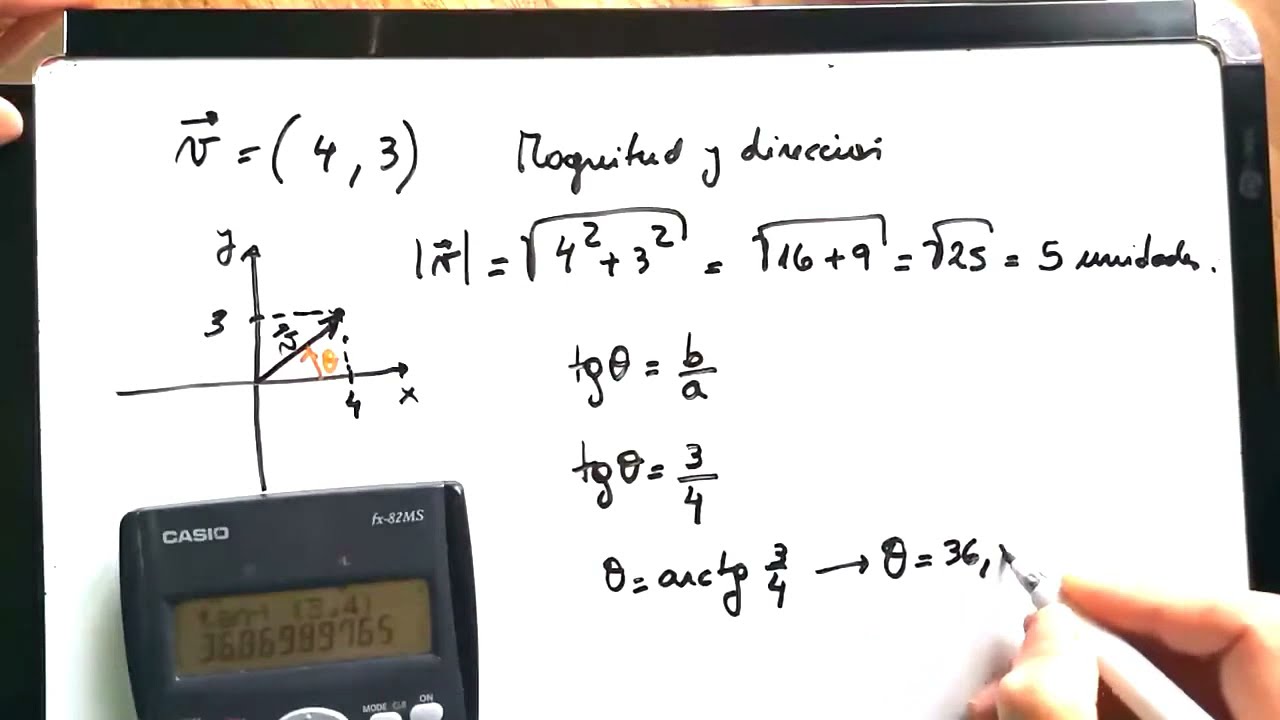 v = (4, 3) Magnitud y dirección
|v| = √4² + 3² = √16 + 9 = √25 = 5 unidades.
y
3
v
θ
4
x
tgθ = b/a
tgθ = 3/4
θ = arctg 3/4 → θ = 36,
CASIO
fx-82MS
36.86989765
MODE
ON